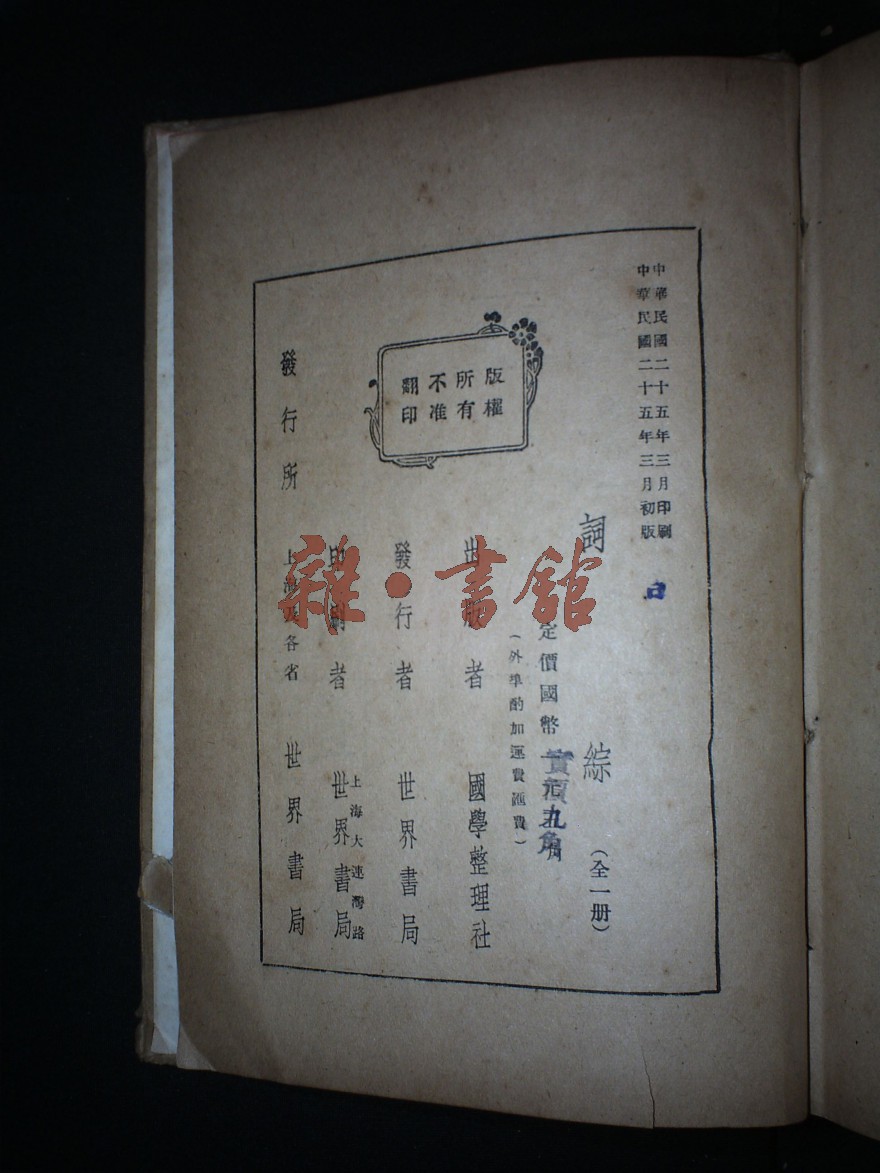 中華民國二十五年三月印刷
中華民國二十五年三月初版
詞綜(全一册)
定價國幣
實價九角
(外埠酌加運費匯費)
版權
所有
不准
翻印
出版者 國學整理社
發行者 世界書局
上海大連灣路
印刷者 世界書局
發行所 上海及各省 世界書局
雜·書館